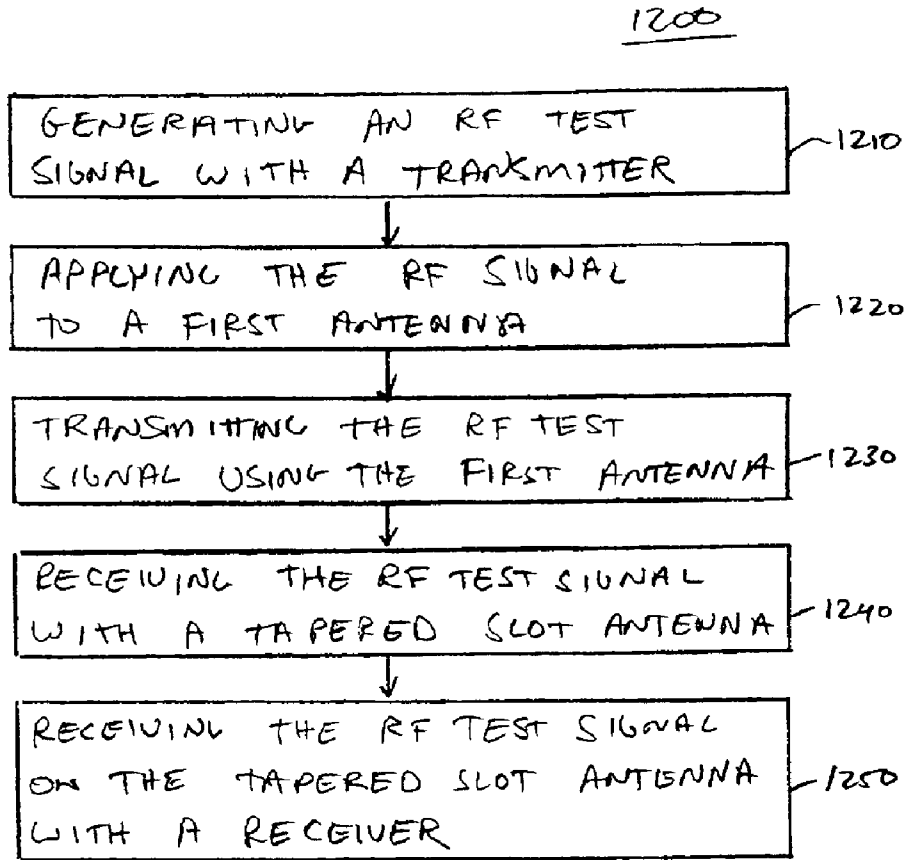 1200
GENERATING AN RF TEST
SIGNAL WITH A TRANSMITTER
1210
APPLYING THE RF SIGNAL
TO A FIRST ANTENNA
1220
TRANSMITTING THE RF TEST
SIGNAL USING THE FIRST ANTENNA
1230
RECEIVING THE RF TEST SIGNAL
WITH A TAPERED SLOT ANTENNA
1240
RECEIVING THE RF TEST SIGNAL
ON THE TAPERED SLOT ANTENNA
WITH A RECEIVER
1250